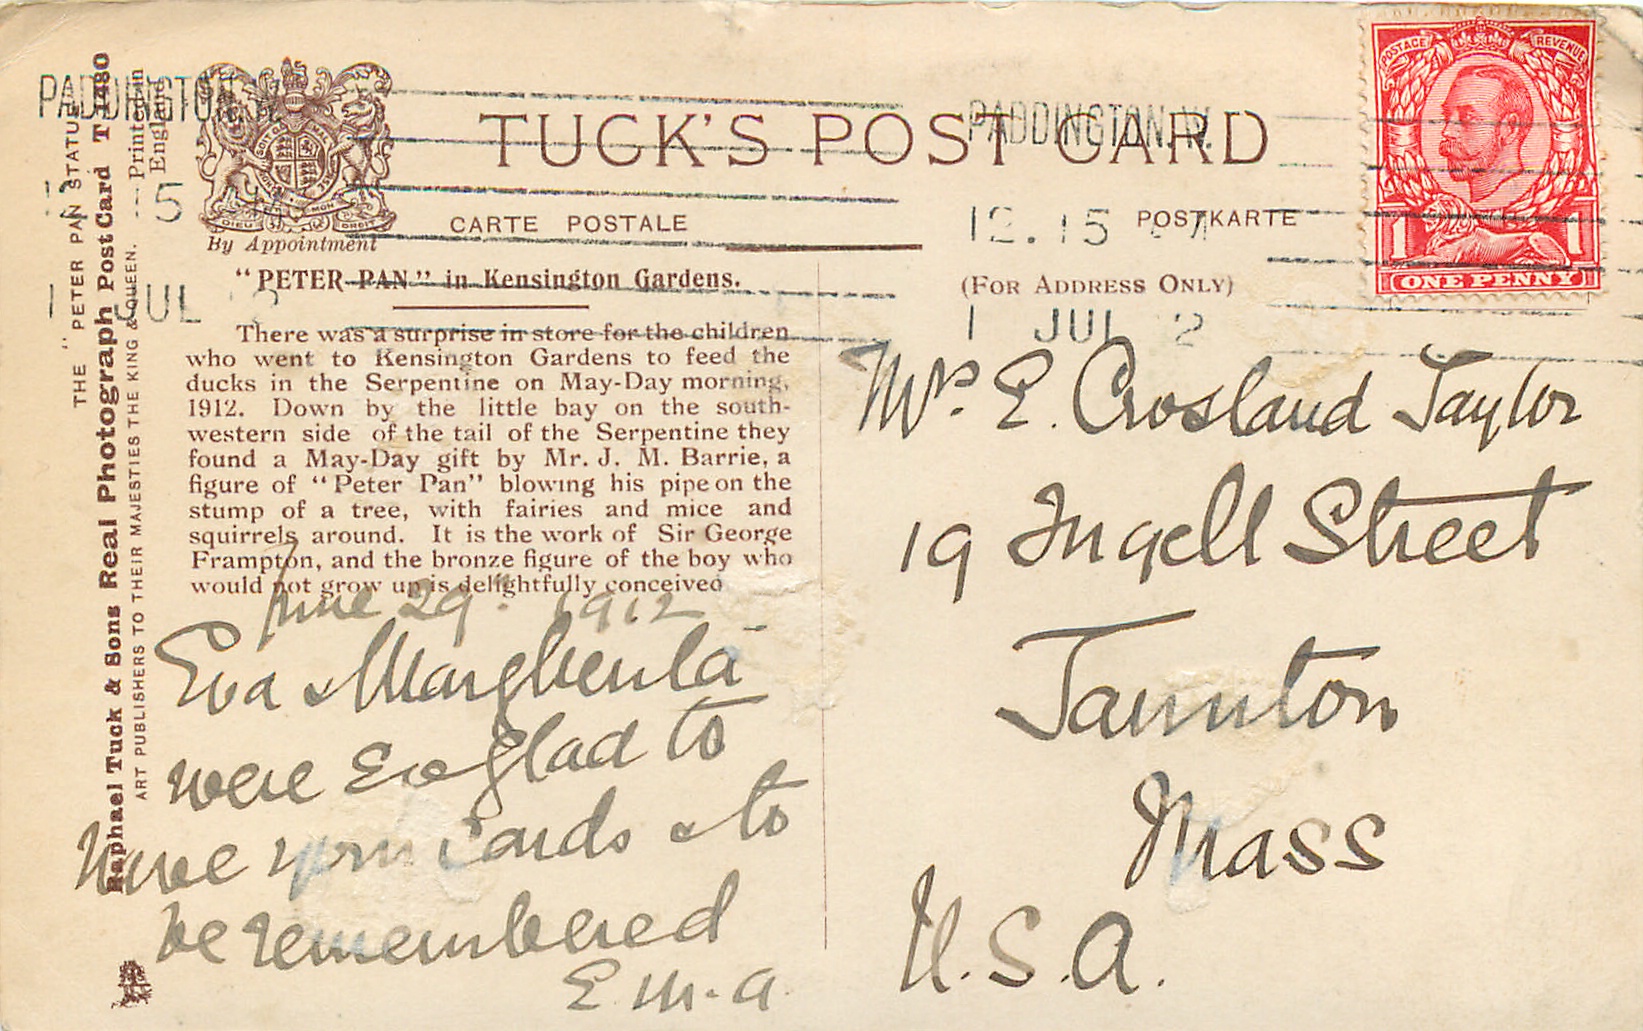 PADDINGTON.W.
5
1 JUL
THE "PETER PAN STATUE"
Raphael Tuck & Sons Real Photograph Post Card T 1480
ART PUBLISHERS TO THEIR MAJESTIES THE KING & QUEEN. --- Printed in
England
DIEU ET MON DROIT
By Appointment
TUCK'S POST CARD
CARTE POSTALE
POSTKARTE
PADDINGTON.W.
12.15
1 JUL 2
POSTAGE REVENUE
1 1
ONE PENNY
(FOR ADDRESS ONLY)
"PETER PAN" in Kensington Gardens.
There was a surprise in store for the children
who went to Kensington Gardens to feed the
ducks in the Serpentine on May-Day morning,
1912. Down by the little bay on the south-
western side of the tail of the Serpentine they
found a May-Day gift by Mr. J. M. Barrie, a
figure of "Peter Pan" blowing his pipe on the
stump of a tree, with fairies and mice and
squirrels around. It is the work of Sir George
Frampton, and the bronze figure of the boy who
would not grow up is delightfully conceived
June 29. 1912
Eva & Margherita
were so glad to
have your cards & to
be remembered
E. M. A.
Mrs. E. Crosland Taylor
19 Ingell Street
Taunton
Mass
U.S.A.